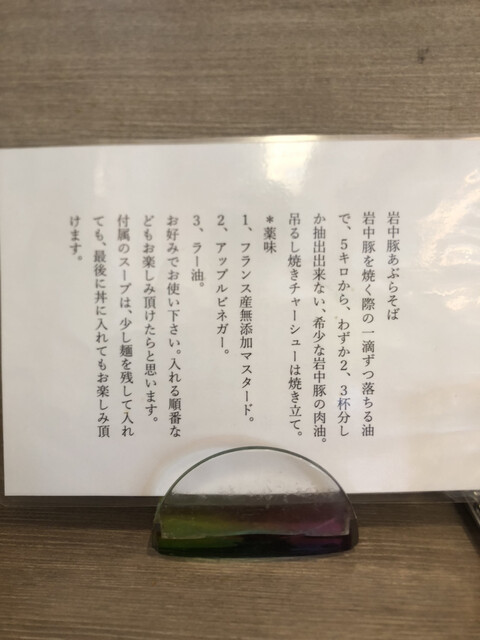 岩中豚あぶらそば
岩中豚を焼く際の一滴ずつ落ちる油
で、5キロから、わずか2、3杯分し
か抽出出来ない、希少な岩中豚の肉油。
吊るし焼きチャーシューは焼き立て。
*薬味
1、フランス産無添加マスタード。
2、アップルビネガー。
3、ラー油。
お好みでお使い下さい。入れる順番な
どもお楽しみ頂けたらと思います。
付属のスープは、少し麺を残して入れ
ても、最後に丼に入れてもお楽しみ頂
けます。